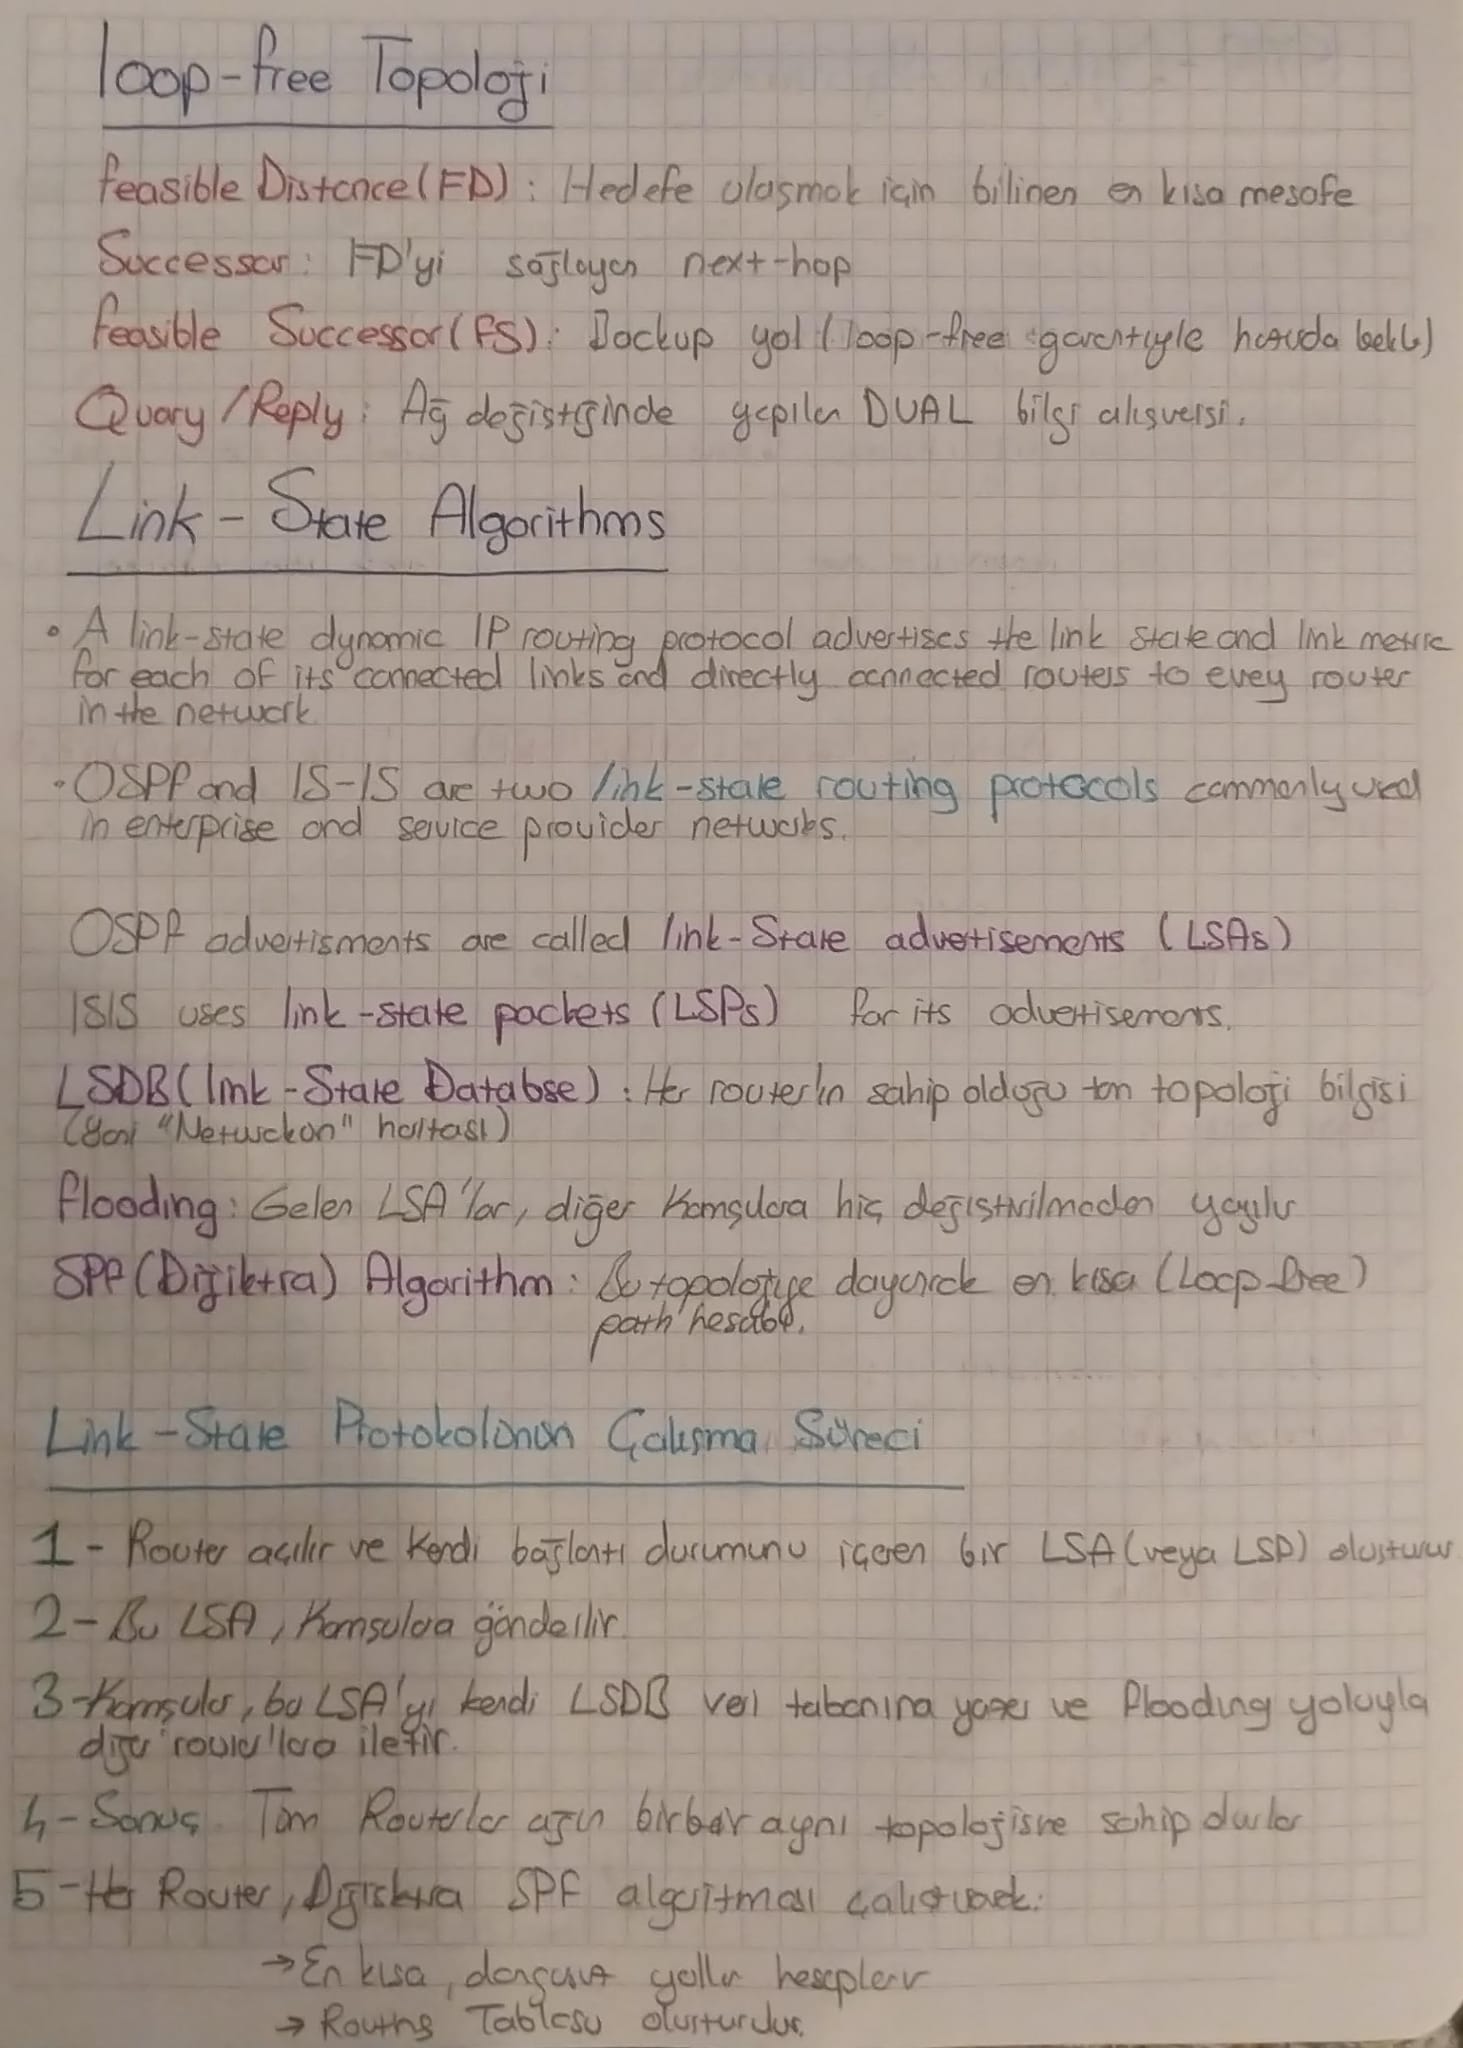 Loop-free Topoloji
Feasible Distance (FD) : Hedefe ulaşmak için bilinen en kısa mesafe
Successor : FD'yi sağlayan next-hop
Feasible Successor (FS) : Backup yol (loop-free garantiyle hatıda bekle)
Quary / Reply : Ağ değiştiğinde yapılan DUAL bilgi alışverişi.
Link - State Algorithms
• A link-state dynamic IP routing protocol advertises the link state and link metric
for each of its connected links and directly connected routers to evey router
in the network
• OSPF and IS-IS are two link-state routing protocols commonly used
in enterprise and service provider networks.
OSPF advertisments are called link-State advertisements (LSAs)
ISIS uses link-state packets (LSPs) for its advertisements.
LSDB (link-State Databse) : Her router'ın sahip olduğu tam topoloji bilgisi
(Yani haritası)
Flooding : Gelen LSA'lar, diğer Komşulara hiç değiştirilmeden yayılır
SPF (Dijiktra) Algorithm : Bu topolojiye dayanarak en kısa (Loop-free)
path
Link-State Protokolünün Çalışma Süreci
1- Router açılır ve Kendi bağlantı durumunu içeren bir LSA (veya LSP) oluşturur
2- Bu LSA, Komşulara gönderilir.
3- Komşular, bu LSA'yı kendi LSDB veri tabanına yazar ve Flooding yoluyla
diğer router'lara iletir.
4- Sonuç. Tüm Routerlar ağın birebir aynı topolojisine sahip
5- Her Router, SPF algoritması çalıştırarak:
→ En kısa, yolları hesaplar
→ Routing Tablosu